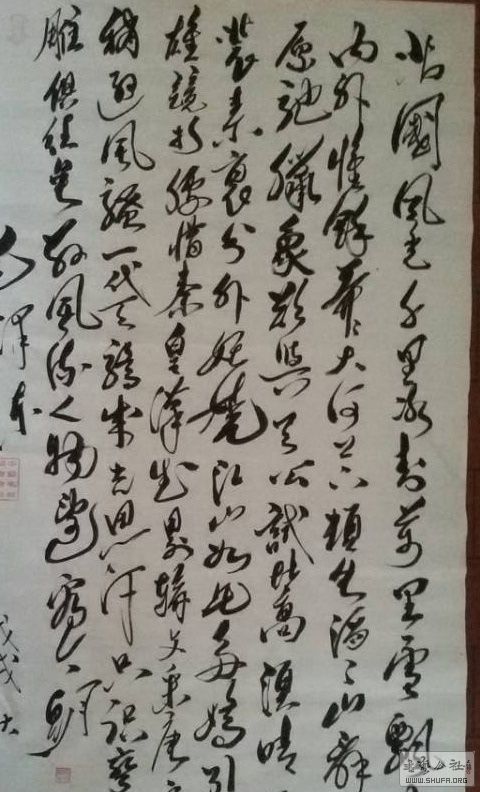 北國風光千里冰封萬里雪飄
内外惟餘莽々大河上下頓失滔々山舞
原馳臘象欲與天公試比高須晴
裝素裹分外妖嬈江山如此多嬌引
雄競折腰惜秦皇漢武略輸文采唐
稍遜風騷一代天驕成吉思汗只識彎
雕俱往矣數風流人物還看今朝
毛澤東
戊戌大
WWW.SHUFA.ORG